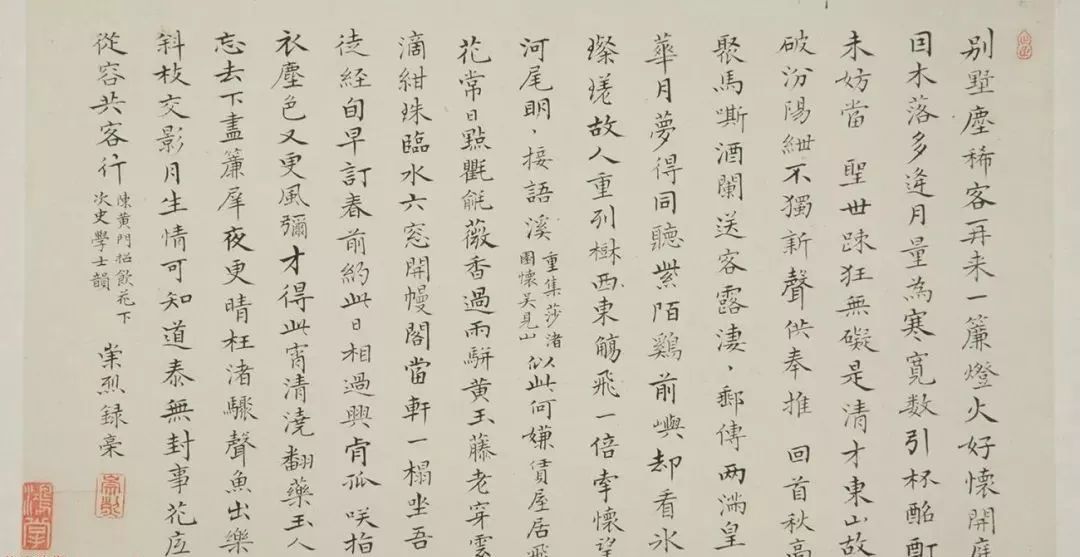 別墅塵稀客再来一簾燈火好懷開
木落多逢月量為寒寛数引杯酩酊
未妨當 聖世踈狂無礙是清才東山故
破汾陽紲不獨新聲供奉推 回首秋高
聚馬嘶酒闌送客露凄〻郵傳两滿皇
華月夢得同聽紫陌鷄前嶼却看氷
璨璨故人重列樹西東觴飛一倍牽懷望
河尾明〻接語溪 重集莎渚園懷吴見山 似此何嫌賃屋居
花常日點氍毹薇香過雨駢黄玉藤老穿雲
滴紺珠臨水六窓開幔閣當軒一榻坐吾
徒経旬早訂春前約此日相過興肯孤 咲指
衣塵色又更風彌才得此宵清澆翻藥玉人
忘去下盡簾犀夜更晴枉渚驟聲魚出樂
斜枝交影月生情可知道泰無封事花
從容共客行 陳黄門招飲花下次史學士韻 崇烈録稾